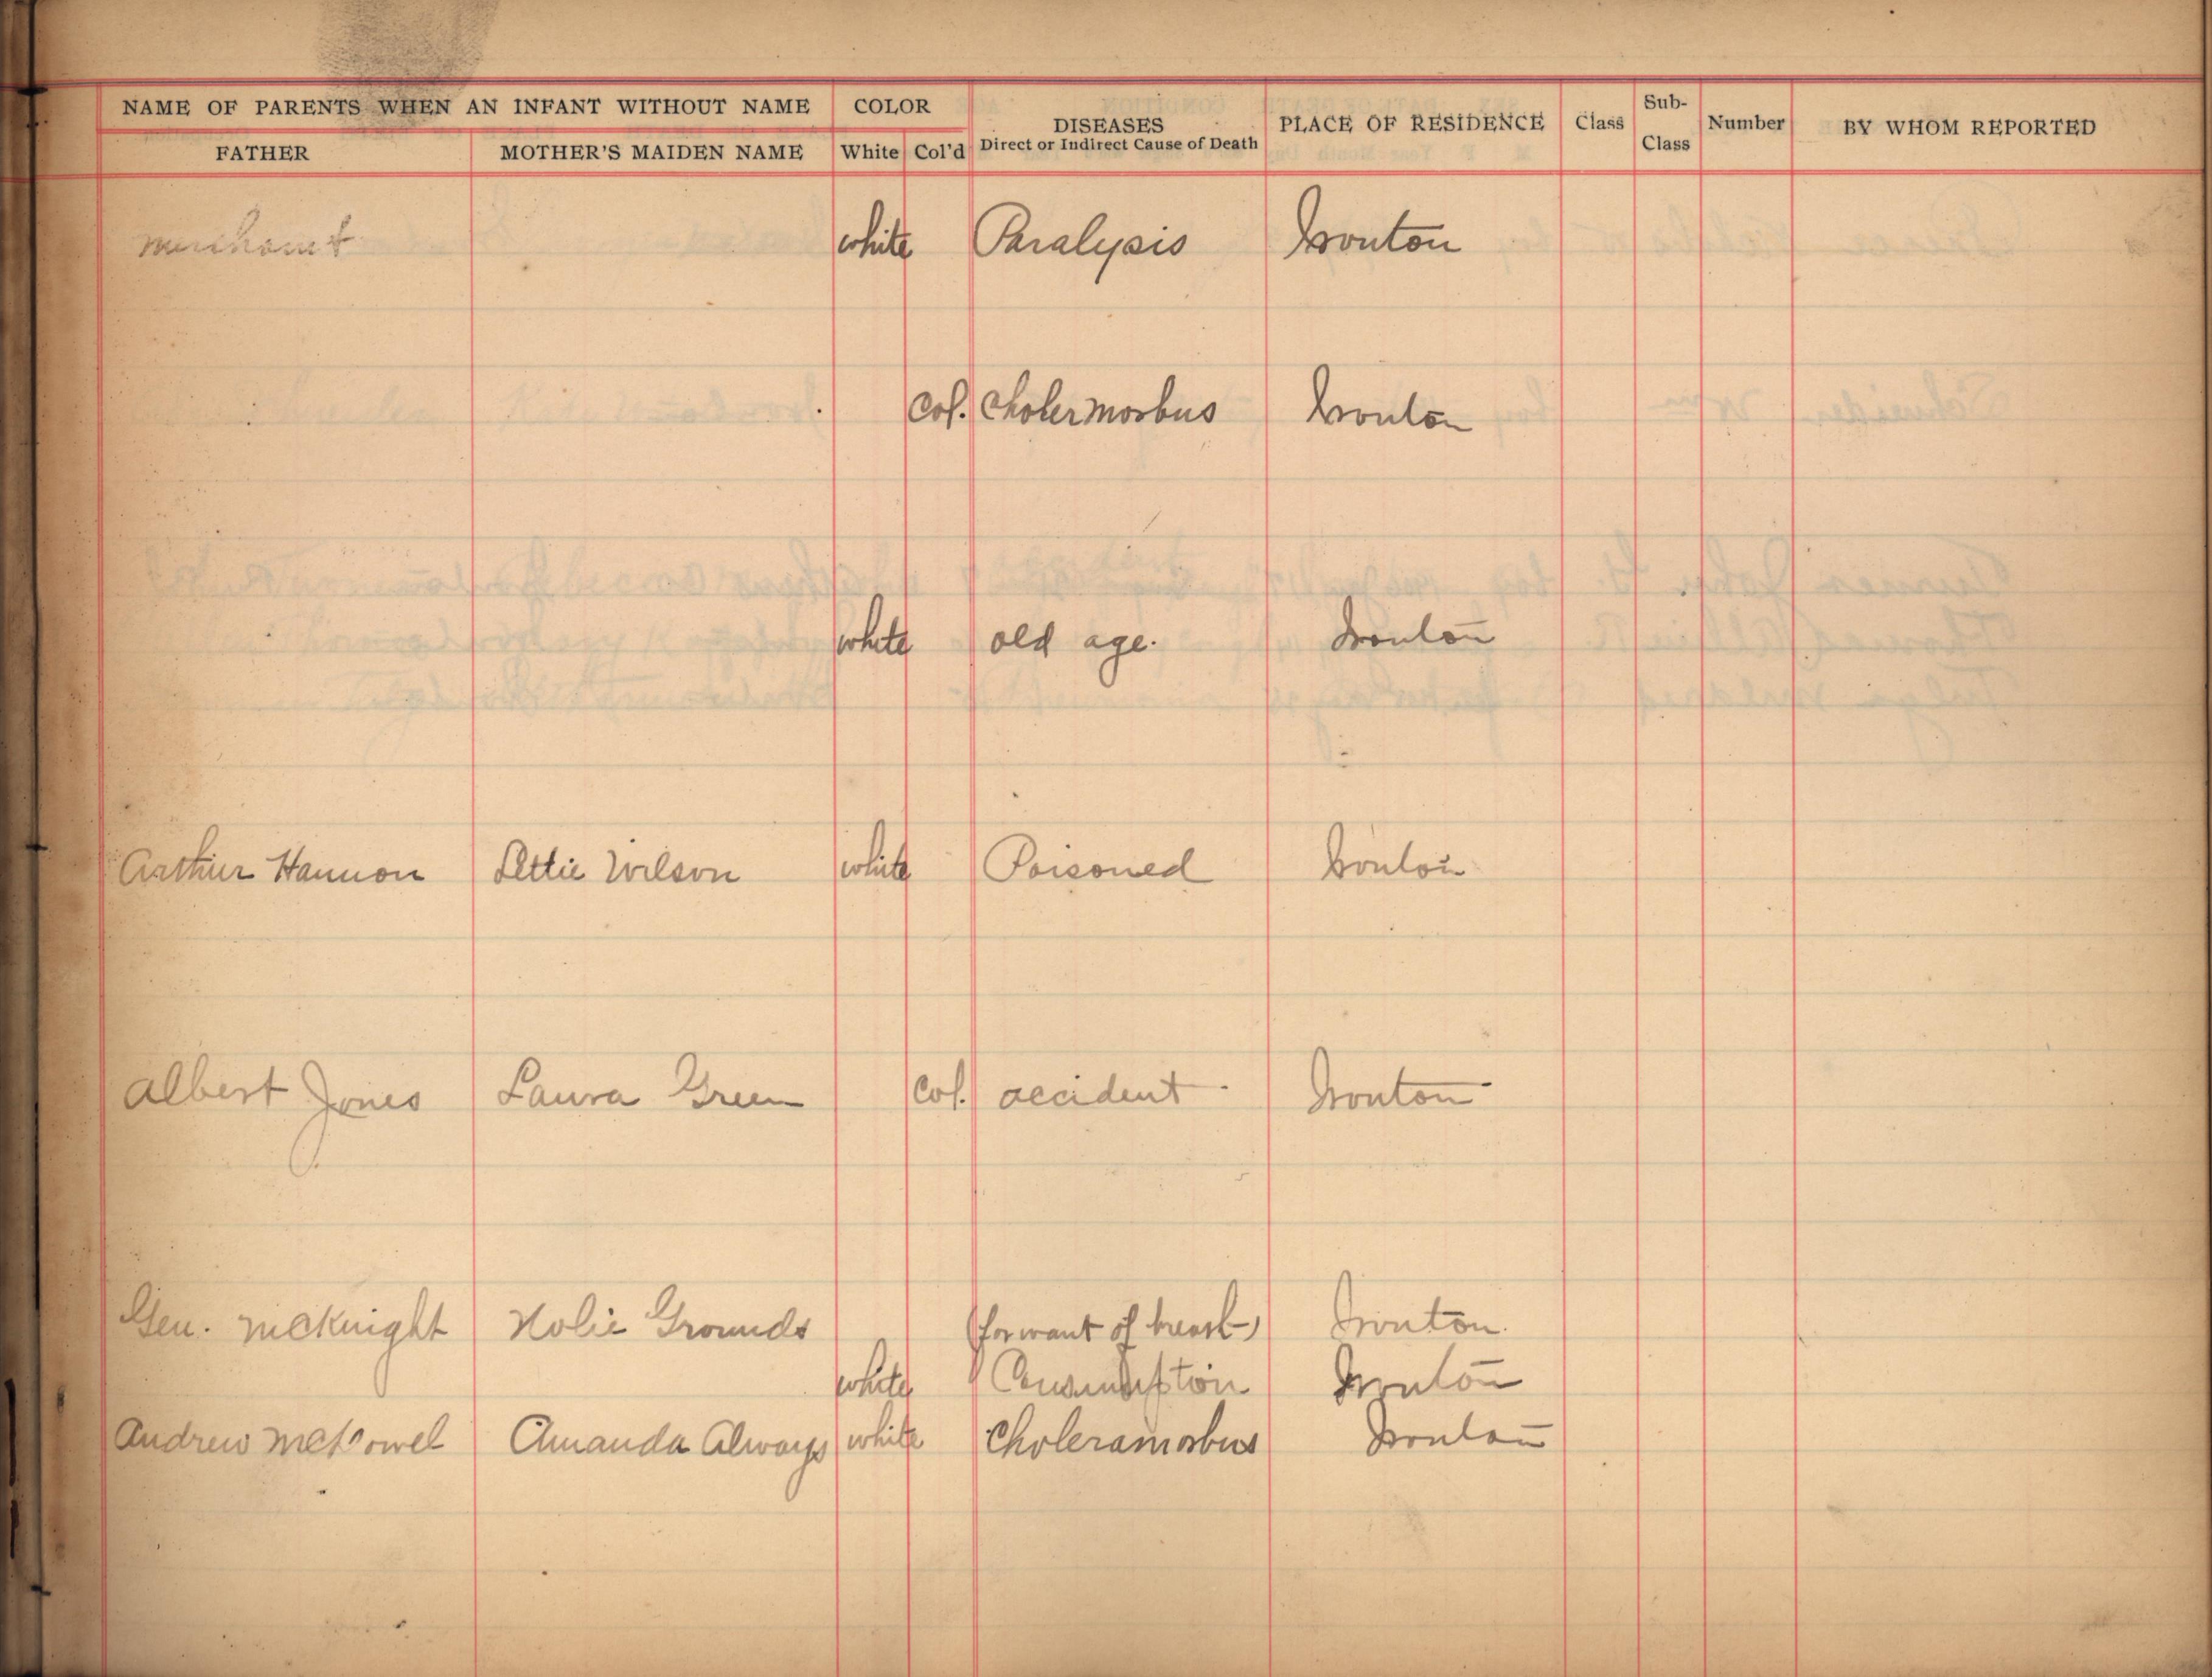 NAME OF PARENTS WHEN AN INFANT WITHOUT NAME COLOR DISEASES PLACE OF RESIDENCE Class Sub-Class Number BY WHOM REPORTED
FATHER MOTHER'S MAIDEN NAME White Col'd Direct or Indirect Cause of Death
merchant white Paralysis Ironton
Col. Choler morbus Ironton
white old age. Ironton
Arthur Hannon Lettie Wilson white Poisoned Ironton
Albert Jones Laura Green Col. accident Ironton
Gen. McKnight Nolie Grounds (for want of breath) Ironton.
white Consumption Ironton
Andrew Amanda Always white Choleramorbus Ironton